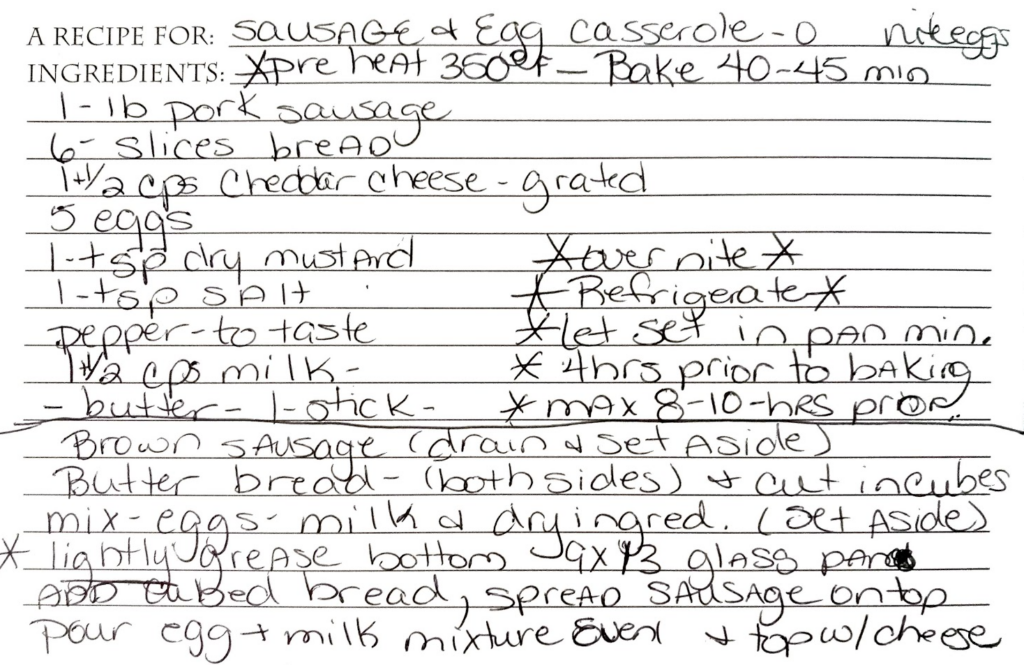 A RECIPE FOR: SAUSAGE & Egg Casserole - O niteeggs
INGREDIENTS: *pre heat 350°F - Bake 40-45 min
1-lb pork sausage
6- slices breAD
1+1/2 cps Cheddar cheese - grated
5 eggs
1-tsp dry mustard *over nite*
1-tsp SAlt *Refrigerate*
pepper-to taste *let set in pAn min.
1+1/2 cps milk- * 4hrs prior to bAking
- butter - 1-stick- *mAx 8-10-hrs prior.
Brown sAusage (drain & set Aside)
Butter bread- (both sides) + cut in cubes
mix-eggs- milk & dry ingred. (set Aside)
* lightly greAse bottom 9x13 glass pAn
ADD cubed bread, spreAD SAusAge on top
pour egg + milk mixture Even + top w/cheese